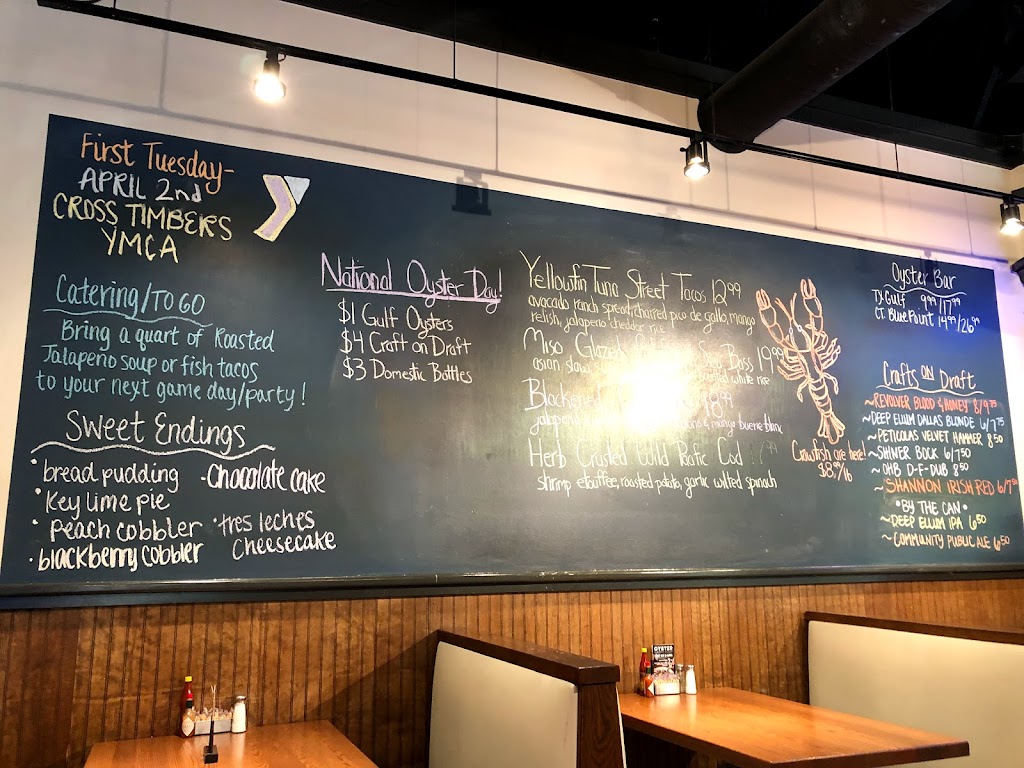 First Tuesday-
APRIL 2nd
CROSS TIMBERS
YMCA
Catering/TO GO
Bring a quart of Roasted
Jalapeño soup or fish tacos
to your next game day/party!
Sweet Endings
• bread pudding
• Key lime pie
• peach cobbler
• blackberry cobbler
• Chocolate cake
• tres leches
Cheesecake
National Oyster Day!
$1 Gulf Oysters
$4 Craft on Draft
$3 Domestic Bottles
Yellowfin Tuna Street Tacos 12.99
avocado ranch spread, charred pico de gallo, mango
relish, jalapeño cheddar rice
Miso Glazed Bass 19.99
asian slaw white rice
Blackened 18.99
jalapeño & mango buerre blanc
Herb Crusted Wild Pacific Cod
shrimp etouffee, roasted potato, garlic wilted spinach
Crawfish are here!
$8.99/lb
Oyster Bar
TX Gulf 9.99/17.99
CT. Blue Point 14.99/26.99
Crafts on Draft
~REVOLVER BLOOD & HONEY 8/9.75
~DEEP ELLUM DALLAS BLONDE 6/7.75
~PETICOLAS VELVET HAMMER 8.50
~SHINER BOCK 6/7.50
~OHB D-F-DUB 8.50
~SHANNON IRISH RED 6/7.50
•BY THE CAN•
~DEEP ELLUM IPA 6.50
~COMMUNITY PUBLIC ALE 6.50
OYSTER